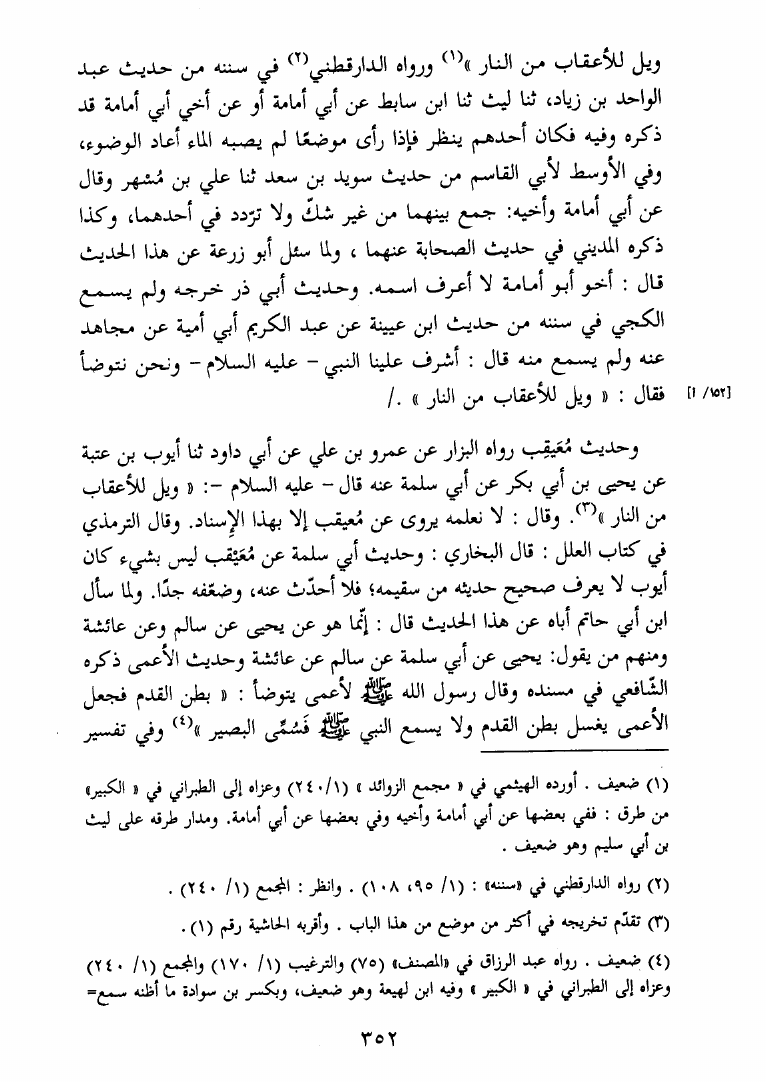 ويل للأعقاب من النار »(١) ورواه الدارقطني(٢) في سننه من حديث عبد
الواحد بن زياد، ثنا ليث ثنا ابن سابط عن أبي أمامة أو عن أخي أبي أمامة قد
ذكره وفيه فكان أحدهم ينظر فإذا رأى موضعًا لم يصبه الماء أعاد الوضوء،
وفي الأوسط لأبي القاسم من حديث سويد بن سعد ثنا علي بن مُسْهر وقال
عن أبي أمامة وأخيه: جمع بينهما من غير شكّ ولا تردّد في أحدهما، وكذا
ذكره المديني في حديث الصحابة عنهما ، ولما سئل أبو زرعة عن هذا الحديث
قال : أخو أبو أمامة لا أعرف اسمه. وحديث أبي ذر خرجه ولم يسمع
الكجي في سننه من حديث ابن عيينة عن عبد الكريم أبي أمية عن مجاهد
عنه ولم يسمع منه قال : أشرف علينا النبي – عليه السلام – ونحن نتوضأ
فقال : « ويل للأعقاب من النار » ./ [١٥٢/ ١]
وحديث مُعَيقِب رواه البزار عن عمرو بن علي عن أبي داود ثنا أيوب بن عتبة
عن يحيى بن أبي بكر عن أبي سلمة عنه قال – عليه السلام –: « ويل للأعقاب
من النار »(٣). وقال : لا نعلمه يروى عن مُعيقب إلا بهذا الإِسناد. وقال الترمذي
في كتاب العلل : قال البخاري : وحديث أبي سلمة عن مُعَيْقب ليس بشيء كان
أيوب لا يعرف صحيح حديثه من سقيمه؛ فلا أحدّث عنه، وضعّفه جدًا. ولما سأل
ابن أبي حاتم أباه عن هذا الحديث قال : إنّما هو عن يحيى عن سالم وعن عائشة
ومنهم من يقول: يحيى عن أبي سلمة عن سالم عن عائشة وحديث الأعمى ذكره
الشّافعي في مسنده وقال رسول الله ﷺ لأعمى يتوضأ : « بطن القدم فجعل
الأعمى يغسل بطن القدم ولا يسمع النبي ﷺ فَسُمِّى البصير »(٤) وفي تفسير
(١) ضعيف . أورده الهيثمي في « مجمع الزوائد » (٢٤٠/١) وعزاه إلى الطبراني في « الكبير»
من طرق : ففي بعضها عن أبي أمامة وأخيه وفي بعضها عن أبي أمامة. ومدار طرقه على ليث
بن أبي سليم وهو ضعيف .
(٢) رواه الدارقطني في «سننه» : (١/ ٩٥، ١٠٨) . وانظر : المجمع (١/ ٢٤٠) .
(٣) تقدّم تخريجه في أكثر من موضع من هذا الباب . وأقربه الحاشية رقم (١).
(٤) ضعيف . رواه عبد الرزاق في «المصنف» (٧٥) والترغيب (١/ ١٧٠) والمجمع (١/ ٢٤٠)
وعزاه إلى الطبراني في « الكبير » وفيه ابن لهيعة وهو ضعيف، وبكسر بن سوادة ما أظنه سمع=
٣٥٢